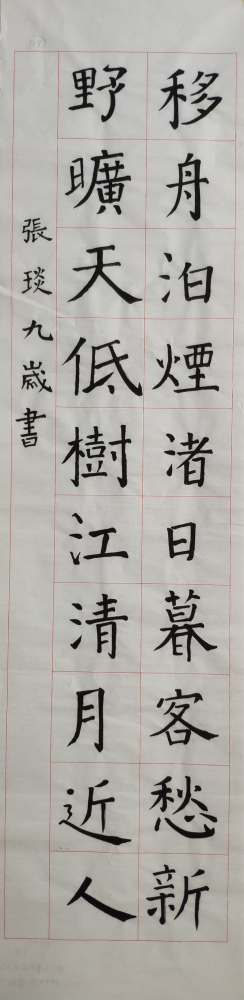 移舟泊煙渚日暮客愁新
野曠天低樹江清月近人
張琰九歲書